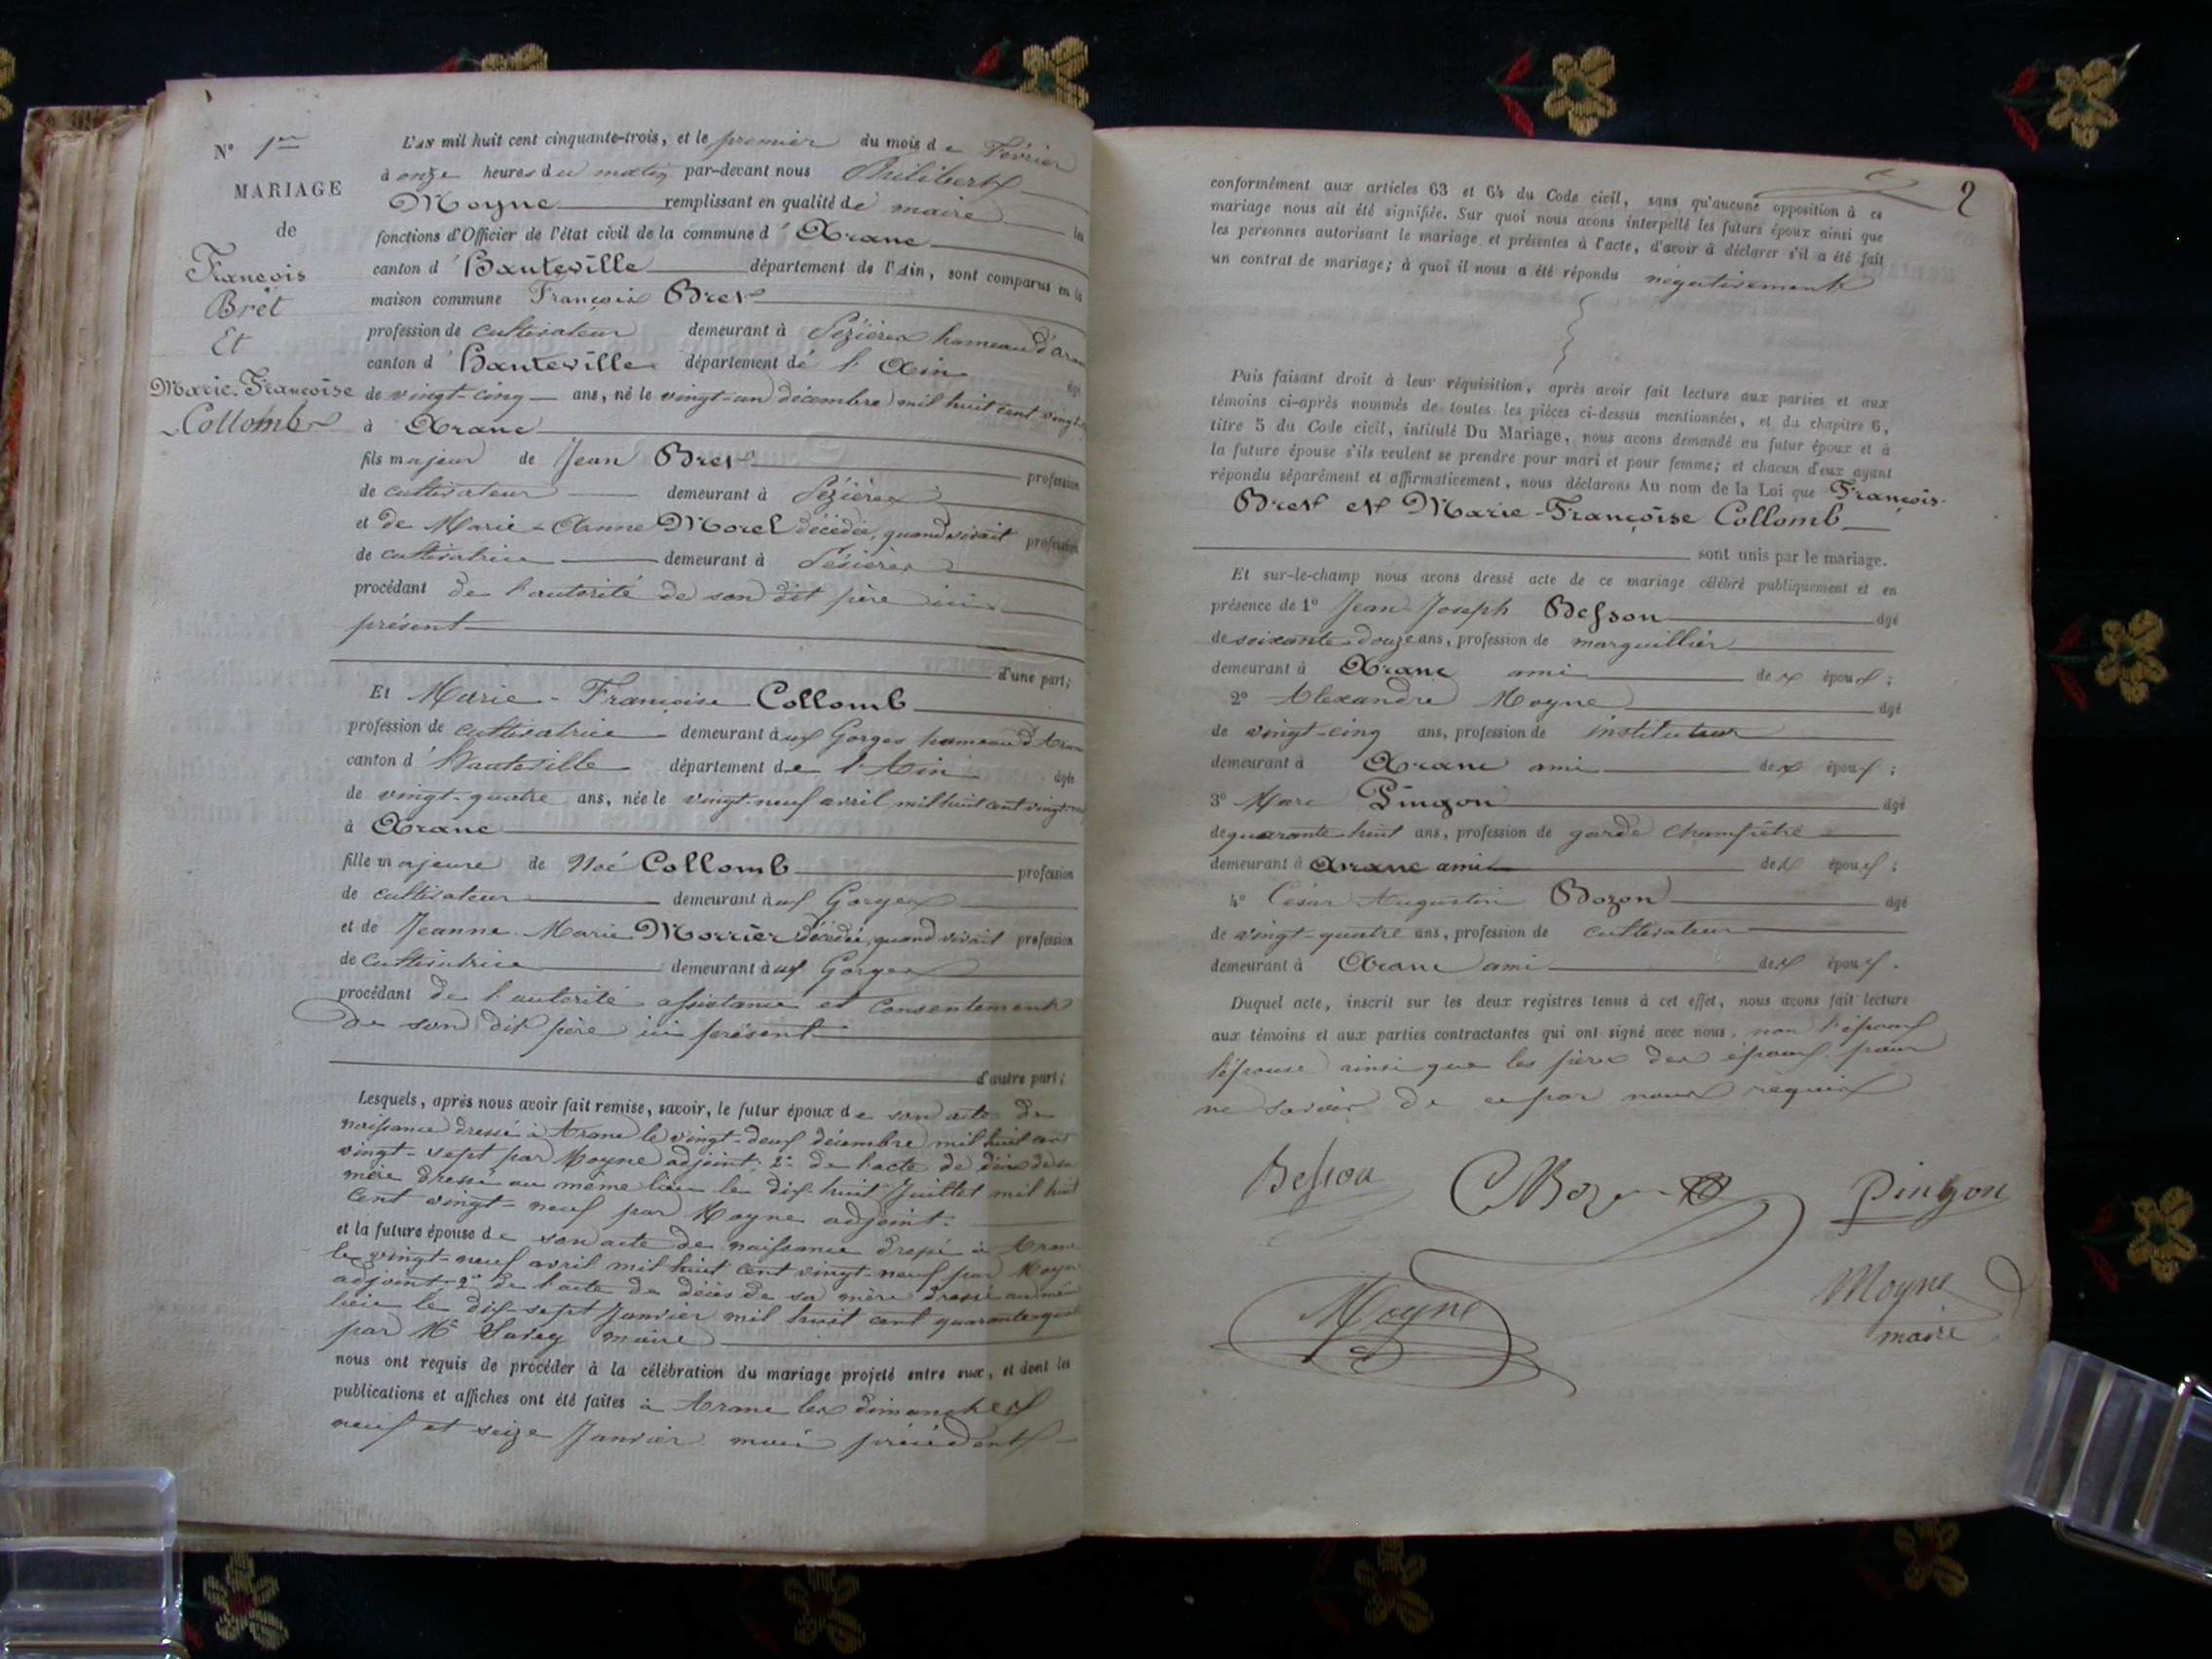 N° 1er
MARIAGE
de
François
Bret
Et
Marie-Françoise
Collomb
L'AN mil huit cent cinquante-trois, et le premier du mois de Février
à onze heures du matin par-devant nous Philibert
Moyne remplissant en qualité de maire les
fonctions d'Officier de l'état civil de la commune d'Aranc
canton d'Hauteville département de l'Ain, sont comparus en la
maison commune François Bret
profession de cultivateur demeurant à Résières hameau d'Aranc
canton d'Hauteville département de l'Ain âgé
de vingt-cinq ans, né le vingt-un décembre mil huit cent vingt
à Aranc
fils majeur de Jean Bret profession
de cultivateur demeurant à
et de Marie-Anne Morel décédée, quand vivait profession
de cultivatrice demeurant à
procédant de l'autorité de son dit père ici
présent
d'une part;
Et Marie-Françoise Collomb
profession de cultivatrice demeurant aux Gorges hameau d'Aranc
canton d'Hauteville département de l'Ain âgée
de vingt-quatre ans, née le vingt-neuf avril mil huit cent vingt
à Aranc
fille majeure de Noé Collomb profession
de cultivateur demeurant aux Gorges
et de Jeanne-Marie Morrier décédée, quand vivait profession
de cultivatrice demeurant aux Gorges
procédant de l'autorité assistance et consentement
de son dit père ici présent
d'autre part;
Lesquels, après nous avoir fait remise, savoir, le futur époux de son acte de
naissance dressé à Aranc le vingt-deux décembre mil huit cent
vingt-sept par Moyne adjoint; 2° de l'acte de décès de sa
mère dressé au même lieu le dix-huit Juillet mil huit
cent vingt-neuf par Moyne adjoint.
et la future épouse de son acte de naissance dressé à Aranc
le vingt-neuf avril mil huit cent vingt-neuf par Moyne
adjoint, 2° de l'acte de décès de sa mère dressé au même
lieu le dix-sept Janvier mil huit cent quarante
par Mr Savey maire
nous ont requis de procéder à la célébration du mariage projeté entre eux, et dont les
publications et affiches ont été faites à Aranc les dimanches
neuf et seize Janvier mois précédent
2
conformément aux articles 63 et 64 du Code civil, sans qu'aucune opposition à ce
mariage nous ait été signifiée. Sur quoi nous avons interpellé les futurs époux ainsi que
les personnes autorisant le mariage et présentes à l'acte, d'avoir à déclarer s'il a été fait
un contrat de mariage; à quoi il nous a été répondu négativement
Puis faisant droit à leur réquisition, après avoir fait lecture aux parties et aux
témoins ci-après nommés de toutes les pièces ci-dessus mentionnées, et du chapitre 6,
titre 5 du Code civil, intitulé Du Mariage, nous avons demandé au futur époux et à
la future épouse s'ils veulent se prendre pour mari et pour femme; et chacun d'eux ayant
répondu séparément et affirmativement, nous déclarons Au nom de la Loi que François
Bret et Marie-Françoise Collomb
sont unis par le mariage.
Et sur-le-champ nous avons dressé acte de ce mariage célébré publiquement et en
présence de 1° Jean-Joseph Besson âgé
de soixante-douze ans, profession de marguillier
demeurant à Aranc ami des époux;
2° Alexandre Moyne âgé
de vingt-cinq ans, profession de instituteur
demeurant à Aranc ami des époux;
3° Marc Pingon âgé
de quarante-huit ans, profession de garde champêtre
demeurant à Aranc ami des époux;
4° César Augustin Bozon âgé
de vingt-quatre ans, profession de cultivateur
demeurant à Aranc ami des époux.
Duquel acte, inscrit sur les deux registres tenus à cet effet, nous avons fait lecture
aux témoins et aux parties contractantes qui ont signé avec nous, non l'époux
l'épouse ainsi que les pères des époux pour
ne savoir de ce par nous requis
Besson
Pingon
Moyne
Moyne
maire